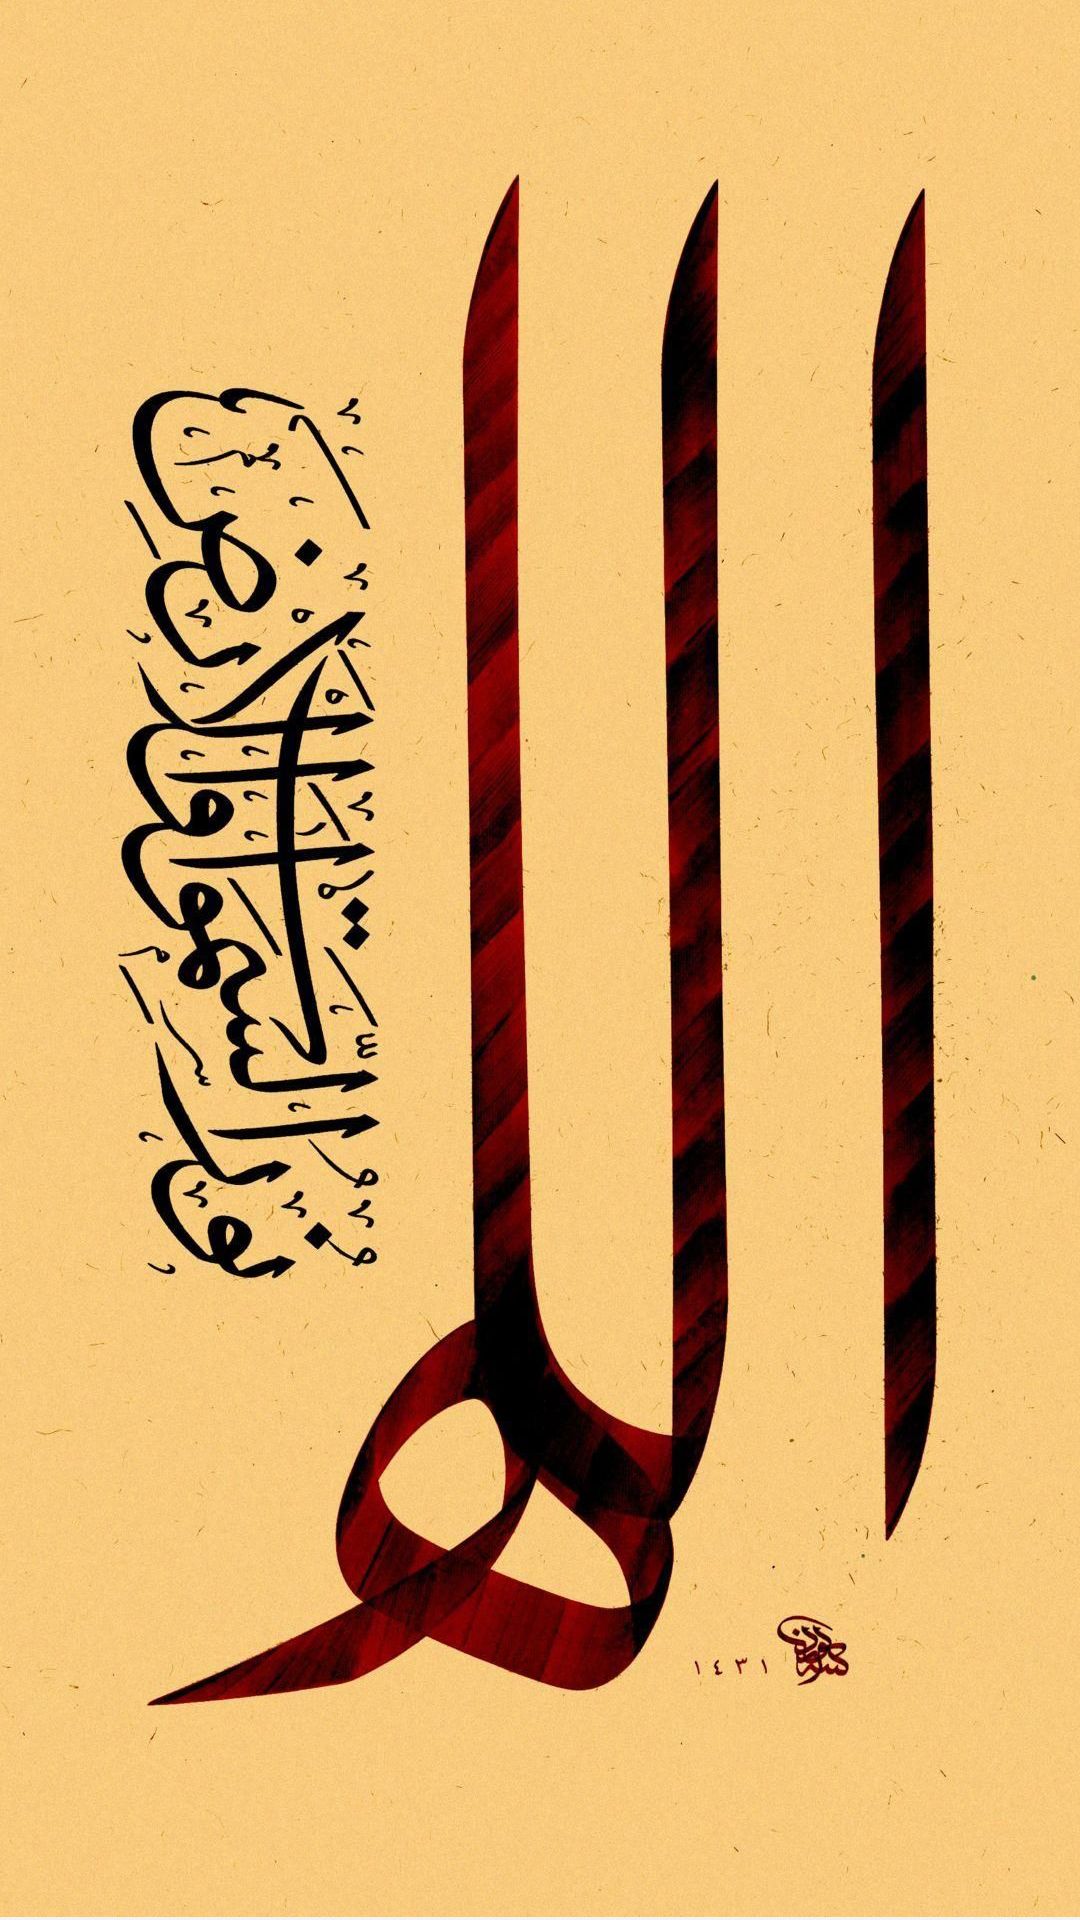 الله
نُورُ السَّمَوَاتِ وَالْأَرْضِ
١٤٣١